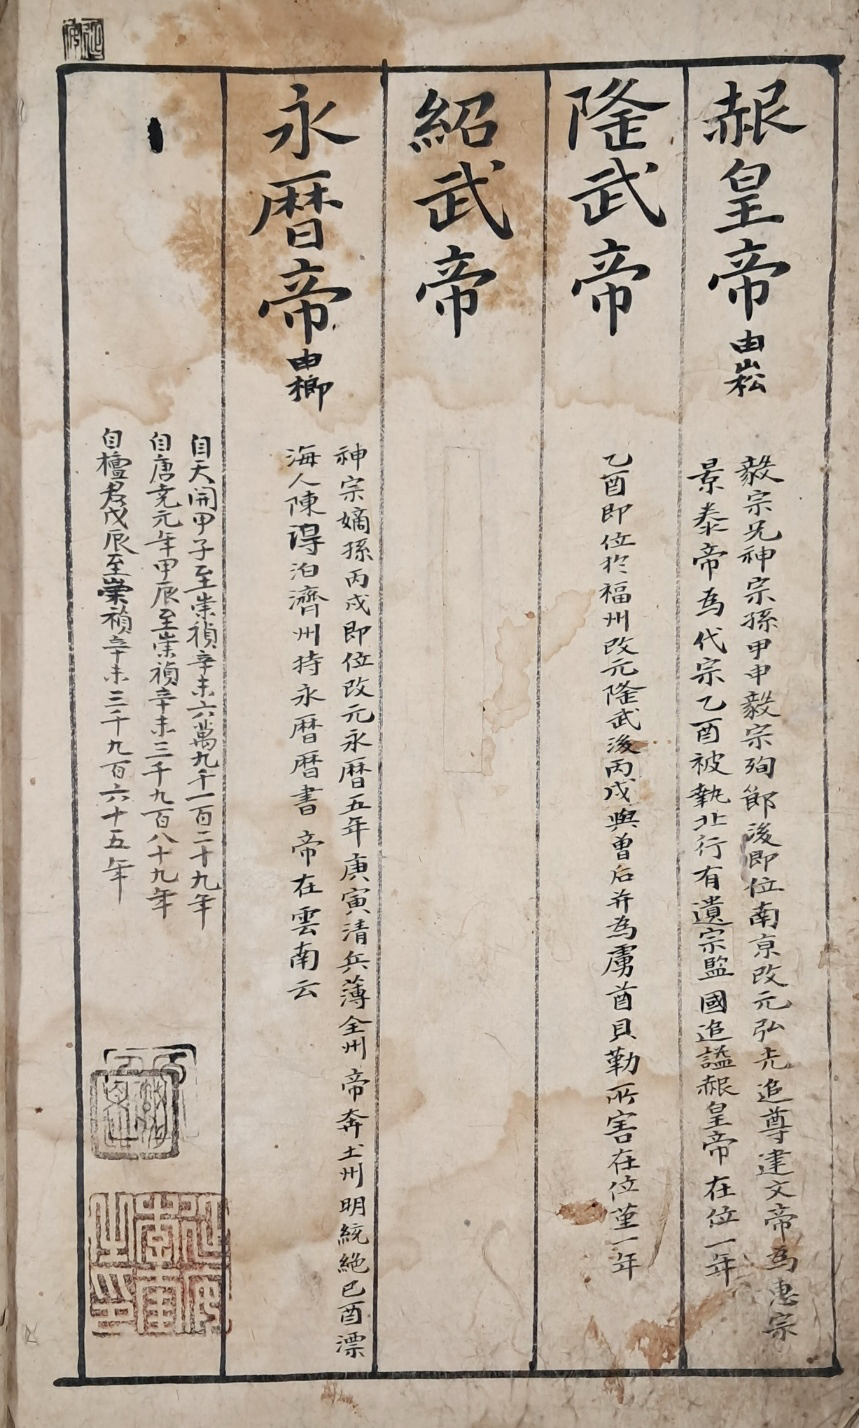 赧皇帝由崧
毅宗兄神宗孫甲申毅宗殉節後即位南京改元弘光追尊建文帝為惠宗
景泰帝為代宗乙酉被執北行有遺宗監國追謚赧皇帝在位一年
隆武帝
乙酉即位於福州改元隆武後丙戌與曾后并為虜酋貝勒所害在位堇一年
紹武帝
永曆帝由榔
神宗嫡孫丙戌即位改元永曆五年庚寅清兵薄全州帝奔土州明統絶已酉漂
海人陳得泊濟州持永曆曆書 帝在雲南云
自天開甲子至崇禎辛未六萬九千一百二十九年
自唐堯元年甲辰至崇禎辛未三千九百八十九年
自檀君戊辰至崇禎辛未三千九百六十五年